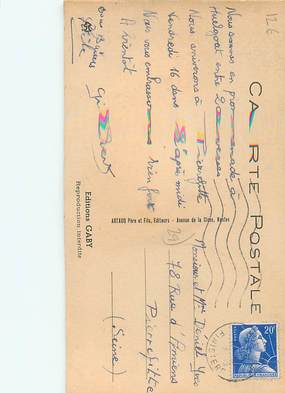 12 €
CARTE POSTALE
Nous sommes en promenade à
Huelgoat entre 2 averses
Nous arriverons à Pierrefitte
Vendredi 16 dans l'après midi
Nous vous embrassons bien fort
A bientôt
Bons baisers
Monsieur et Mme Deniel Yves
78 Rue d'Amiens
Pierrefitte
(Seine)
(29)
ARTAUD Père et Fils, Editeurs - Avenue de la Close, Nantes
Editions GABY
Reproduction Interdite
20F